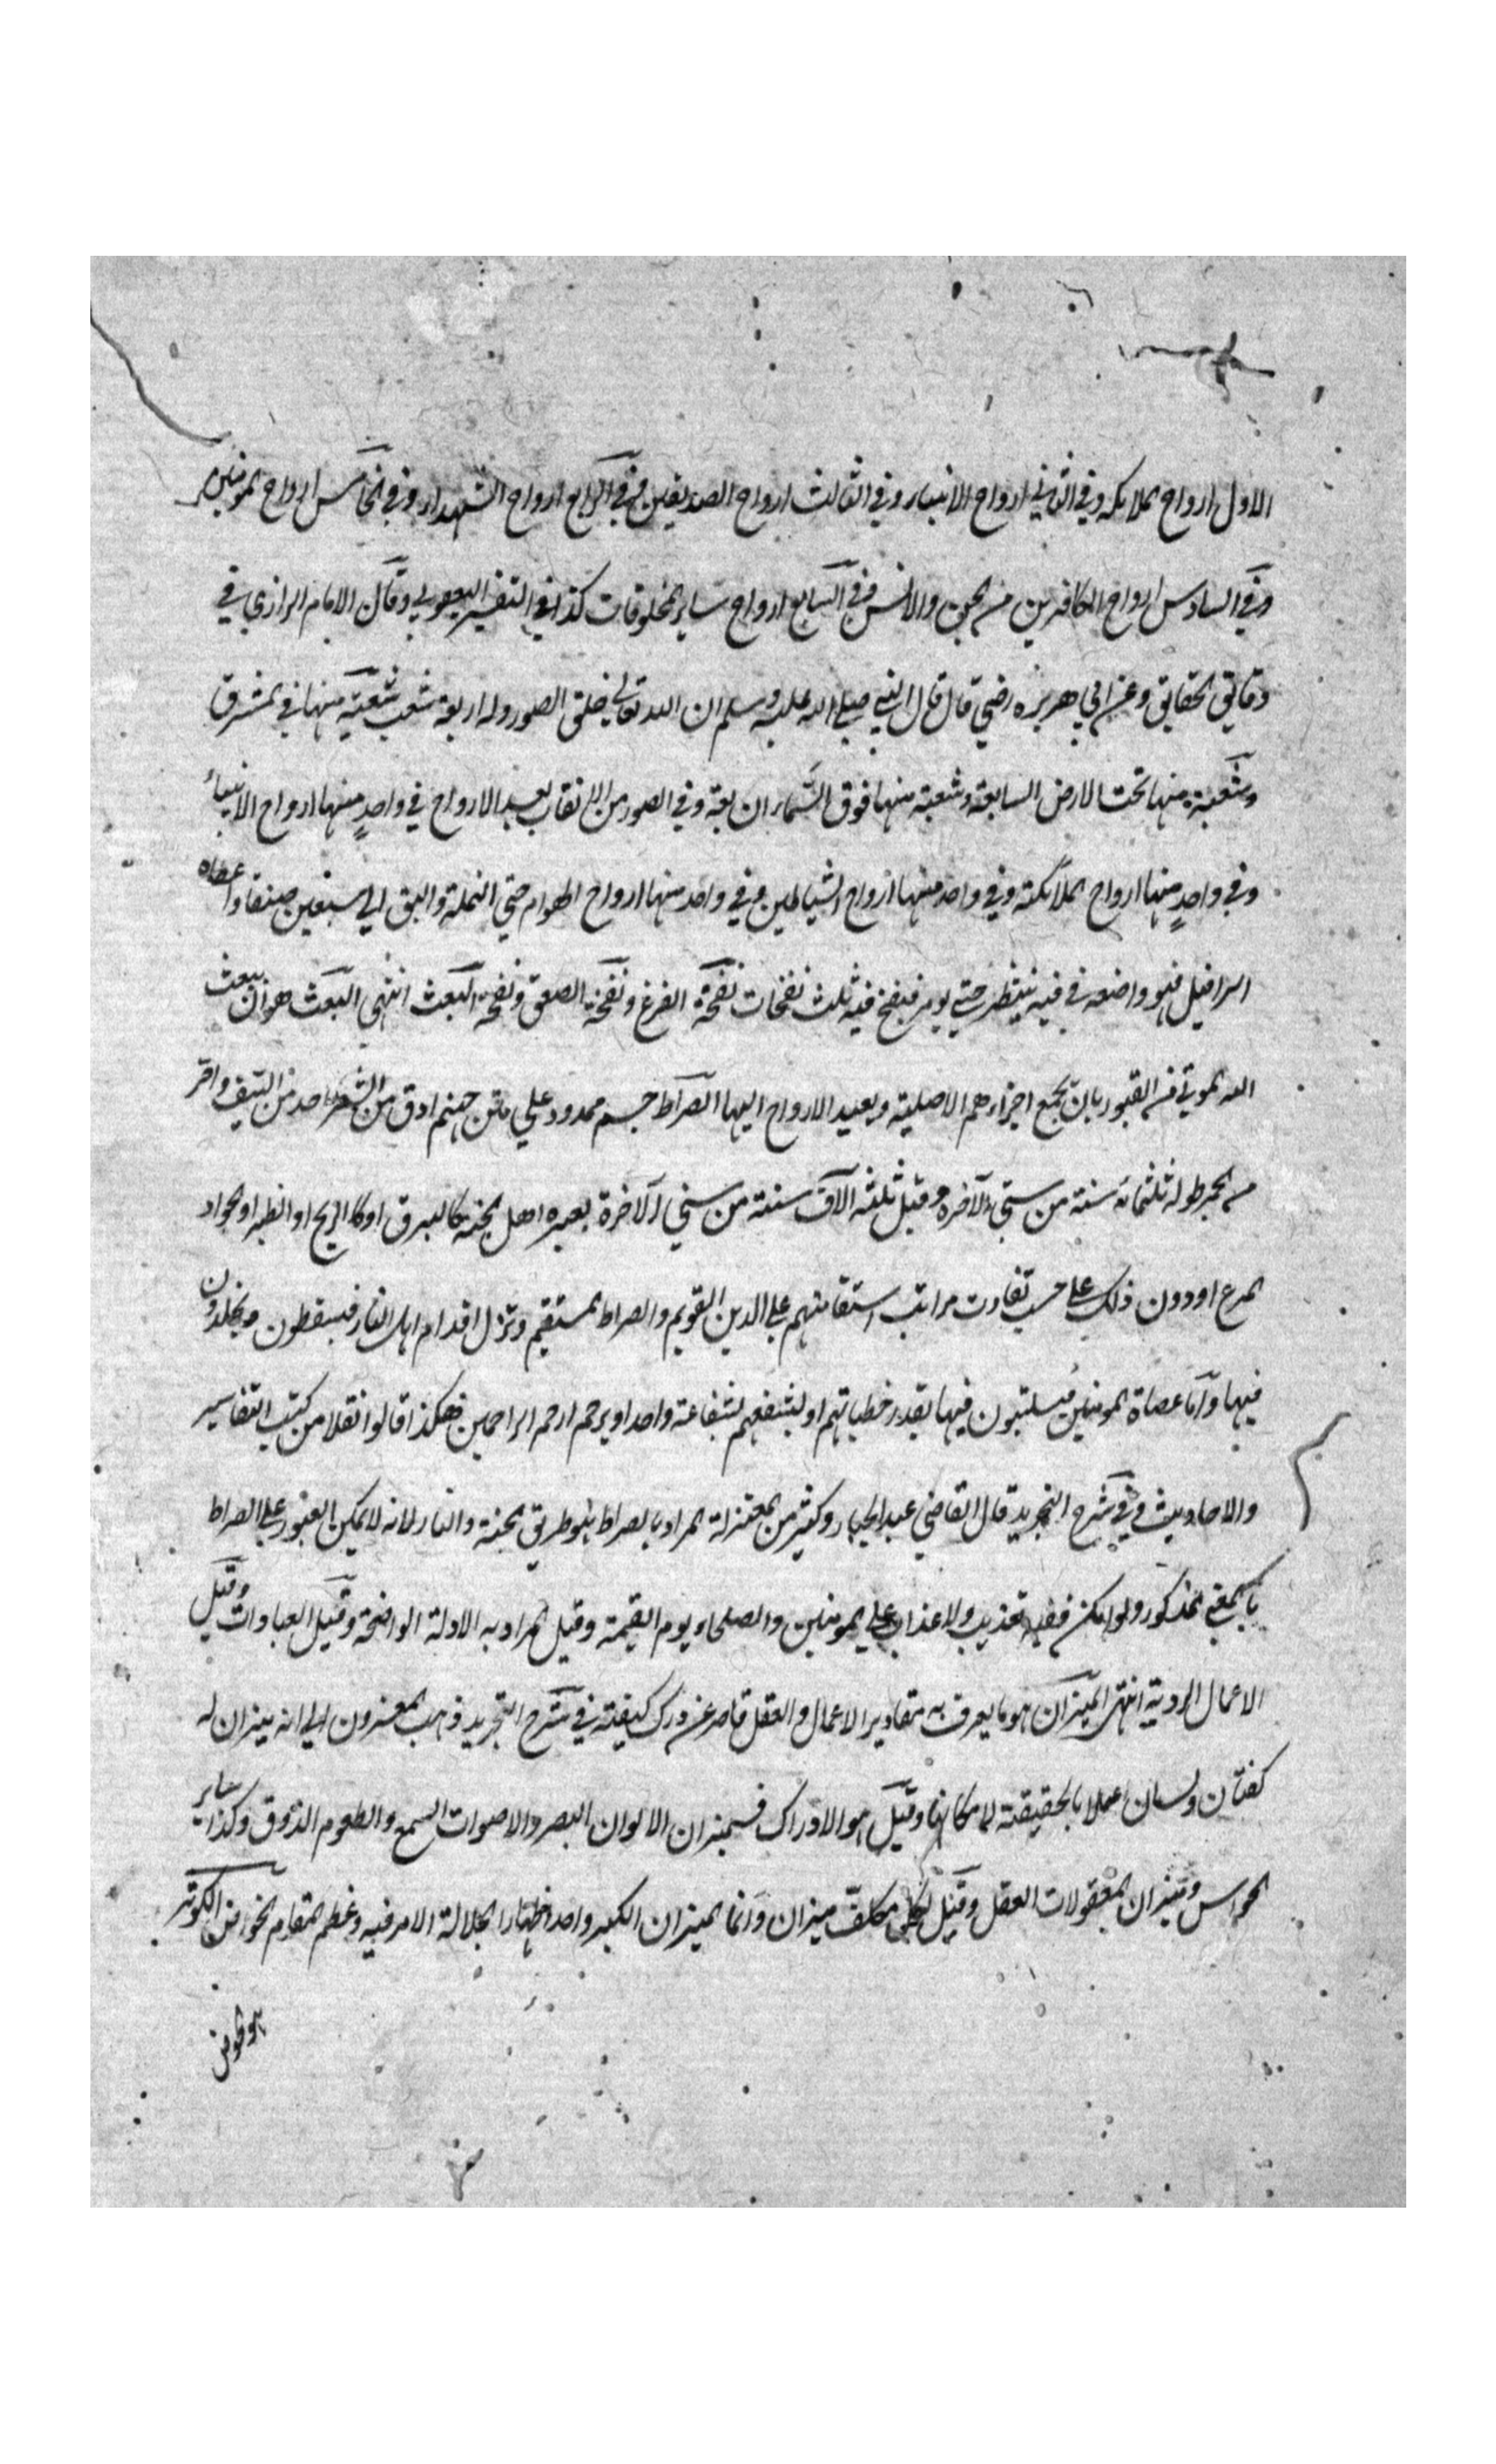 الاول ارواح الملائكه وفي الثاني ارواح الانبياء وفي الثالث ارواح الصديقين وفي الرابع ارواح الشهداء وفي الخامس ارواح المومنين
وفي السادس ارواح الكافرين من الجن والانس وفي السابع ارواح ساير المخلوقات كذا في التفسير اليعقوبي وقال الامام الرازي في
دقايق الحقايق وعن ابي هريره رضي قال قال النبي صلى الله عليه وسلم ان الله تعالى خلق الصور وله اربعة شعب شعبة منها في المشرق
وشعبة منها تحت الارض السابعة وشعبة منها فوق السماء السابعة وفي الصور من الاثقاب بعدد الارواح في واحدٍ منها ارواح الانبياء
وفي واحدٍ منها ارواح الملائكة وفي واحد منها ارواح الشياطين وفي واحد منها ارواح الهوام حتى النملة والبق الى سبعين صنفا واعطاه
اسرافيل فهو واضعه في فيه ينتظر حتى يومر فينفخ فيه ثلث نفخات نفخة الفزع ونفخة الصعق ونفخة البعث انتهى البعث هو ان يبعث
الله الموتى من القبور بان يجمع اجزاءهم الاصلية ويعيد الارواح اليها الصراط جسم ممدود على متن جهنم ادق من الشعر احد من السيف واحر
من الجمر طوله ثلثمائه سنة من سني الآخره وقيل ثلثه الآف سنة من سني الآخرة يعبره اهل الجنه كالبرق او كالريح او الطير او الجواد
المسرع او دون ذلك على حسب تفاوت مراتب استقامتهم على الدين القويم والصراط المستقيم وتزل اقدام اهل النار فيسقطون ويخلدون
فيها واما عصاة المومنين فيلبثون فيها بقدر خطياتهم او يشفعهم شفاعة واحد او يرحم ارحم الراحمين هكذا قالوا نقلا من كتب التفاسير
والاحاديث وفي شرح التجريد قال القاضي عبد الجبار وكثير من المعتزلة المراد بالصراط هو طريق الجنة والنار لانه لا يمكن العبور على الصراط
بالمعنى المذكور ولو امكن ففيه تعذيب ولا عذاب على المومنين والصلحاء يوم القيمة وقيل المراد به الادلة الواضحة وقيل العبادات وقيل
الاعمال الردية انتهى الميزان هو ما يعرف به مقادير الاعمال والعقل قاصر عن درك كيفيته في شرح التجريد ذهب المفسرون الى انه ميزان له
كفتان ولسان عملا بالحقيقة لامكانها وقيل هو الادراك فميزان الالوان البصر والاصوات السمع والطعوم الذوق وكذا ساير
الحواس وميزان المعقولات العقل وقيل لكل مكلف ميزان وانما الميزان الكبير واحد اظهارا لجلالة الامر فيه وعظم المقام الحوض الكوثر
هو الحوض